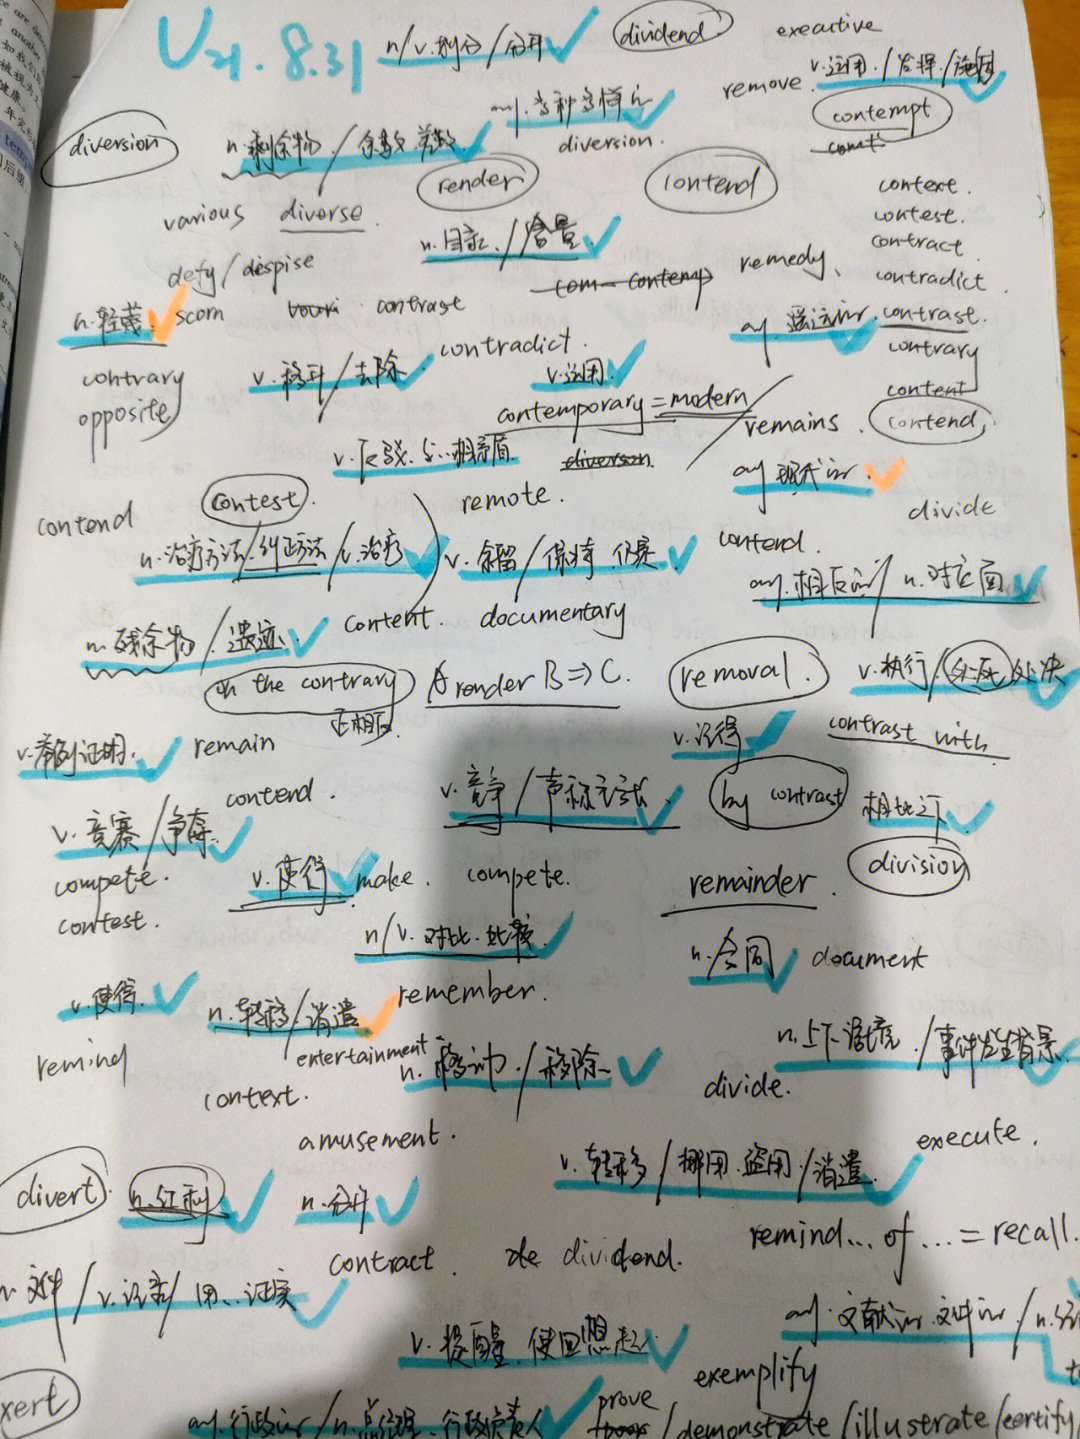 U21. 8.31
n/v.划分/分开 dividend executive
remove. v.运用/发挥/施加
adj.多种多样的 contempt
diversion n.剩余物/余数 差数 diversion. cont
render contend context.
various diverse. contest.
n.目录/含量 contract
defy/despise com contemp remedy、 contradict.
n.轻蔑. scorn contrast adj.遥远的. contrast.
contradict. contrary
contrary v.移开/去除 v.运用. content
opposite contemporary=modern remains. contend,
v.反驳.与..相矛盾 diverson. adj.现代的.
contest. remote. divide
contend
n.治疗方法/纠正方法/v.治疗 v.余留/保持 仍是 contend.
adj.相反的/n.对立面
content. documentary
n.残余物/遗迹.
on the contrary A render B⇒C. removal. v.执行/处死 处决
正相反
v.举例证明. remain v.记得 contrast with
contend. v.竞争/声称 by contrast 相比之下
v.竞赛/争夺.
compete. v.使得 make. compete. remainder. division
contest.
n/v.对比.比较 n.合同 document
v.使得. n.转移/消遣 remember.
entertainment n.上下语境./事件发生背景
remind n.移动./移除 divide.
context.
amusement. execute.
v.转移/挪用.盗用/消遣
divert. n.红利 n.分开
remind... of ... = recall.
contract. de dividend.
n.文件/v.记录/用..证实
adj.文献的.文件的/n.
v.提醒.使回想起
exemplify
xert adj.行政的/n.总经理.行政负责人 prove
/demonstrate/illustrate/certify